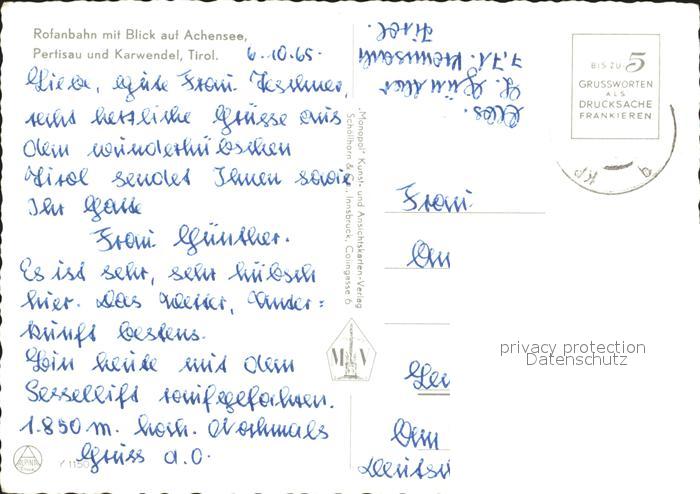 Rofanbahn mit Blick auf Achensee,
Pertisau und Karwendel, Tirol.
6.10.65.
Liebe, gute Frau
recht herzliche Grüsse aus
dem wunderhübschen
Tirol sendet Ihnen sowie
Ihr Gatte
Frau Günther.
Es ist sehr, sehr hübsch
hier. Das Wetter, Unter=
kunft bestens.
Bin heute mit dem
Sessellift raufgefahren.
1.850 m. hoch. Nochmals
Gruss d.O.
Abs. G. Günther
Tirol.
"Monopol" Kunst- und Ansichtskarten-Verlag
Schöllhorn & Innsbruck, Colingasse 6
M V
BIS ZU 5
GRUSSWORTEN
ALS
DRUCKSACHE
FRANKIEREN
Frau
An
privacy protection
Datenschutz